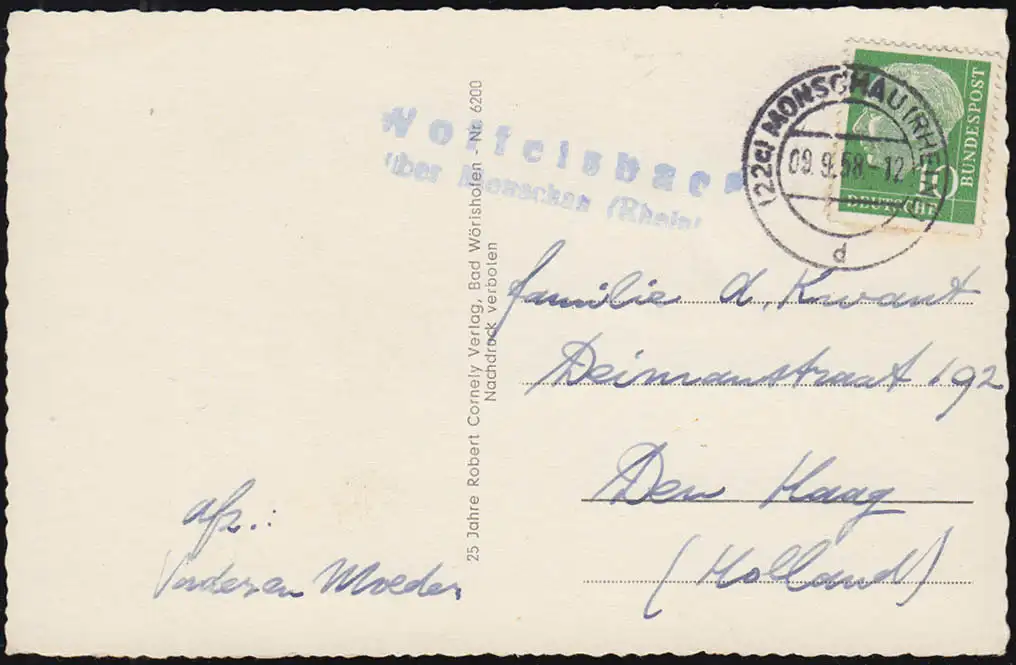 Woffelsbach
über Monschau (Rhein)
(22c) MONSCHAU (RHEINL)
09.9.58.-12
d
10
BUNDESPOST
DEUTSCHE
25 Jahre Robert Cornely Verlag, Bad Wörishofen - Nr. 6200
Nachdruck verboten
familie A. Kwant
Deimanstraat 192
Den Haag
(Holland)
afz.:
Vader en Moeder